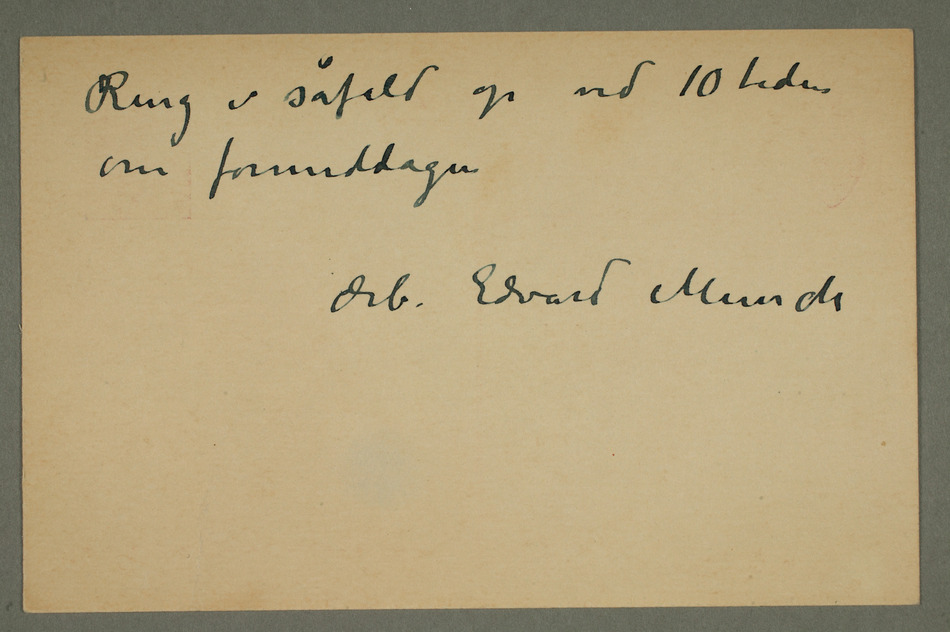 Ring i såfald op ved 10 tiden
om formiddagen
Ærb. Edvard Munch